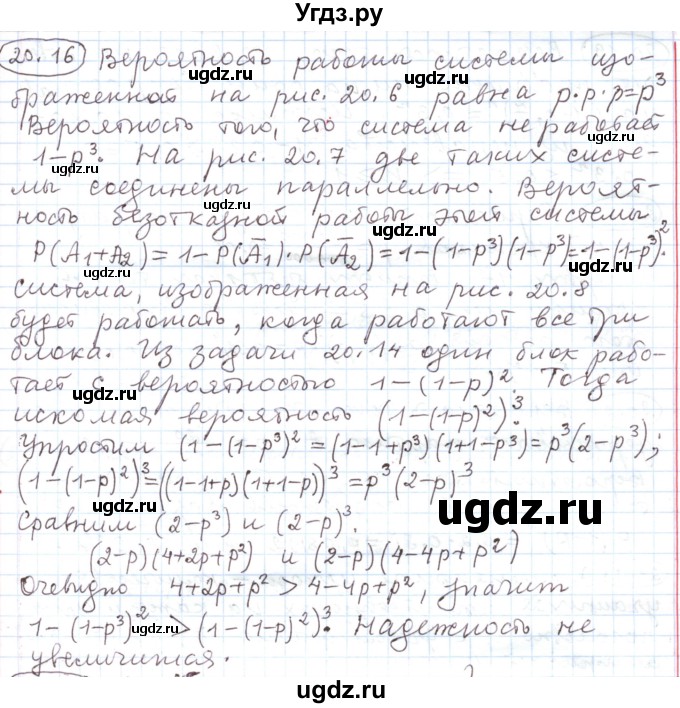 Угдз.ру
20.16 Вероятность работы системы изо-
браженной на рис. 20.6 равна p·p·p=p³
Вероятность того, что система не работает
1-p³. На рис. 20.7 две таких систе-
мы соединены параллельно. Вероят-
ность безотказной работы этой системы
P(A₁+A₂)=1-P(Ā₁)·P(Ā₂)=1-(1-p³)(1-p³)=1-(1-p³)².
система, изображенная на рис. 20.8
будет работать, когда работают все три
блока. Из задачи 20.14 один блок рабо-
тает с вероятностью 1-(1-p)². Тогда
искомая вероятность (1-(1-p)²)³.
Упростим (1-(1-p³)²=(1-1+p³)(1+1-p³)=p³(2-p³);
(1-(1-p)²)³=((1-1+p)(1+1-p))³=p³(2-p)³
Сравним (2-p³) и (2-p)³.
(2-p)(4+2p+p²) и (2-p)(4-4p+p²)
Очевидно 4+2p+p²>4-4p+p², значит
1-(1-p³)²>(1-(1-p)²)³. Надежность не
увеличится.
ugdz.ru
ugdz.ru
ugdz.ru
ugdz.ru
ugdz.ru
ugdz.ru
ugdz.ru
ugdz.ru
ugdz.ru
ugdz.ru
ugdz.ru
ugdz.ru
ugdz.ru